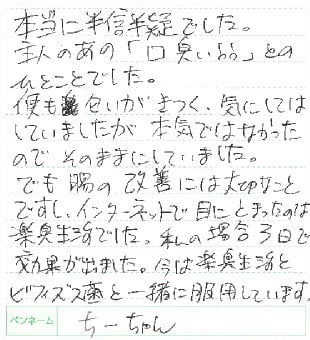 本当に半信半疑でした。
主人のあの「口臭い」との
ひとことでした。
便も匂いがきつく、気にしては
していましたが 本気ではなかった
ので そのままにしていました。
でも 腸の 改善には 大切なこと
ですし、インターネットで 目にとまったのは
楽臭生活でした。私の場合 3日で
効果が出ました。今は楽臭生活と
ビフィズス菌と一緒に服用しています。
ペンネーム ちーちゃん